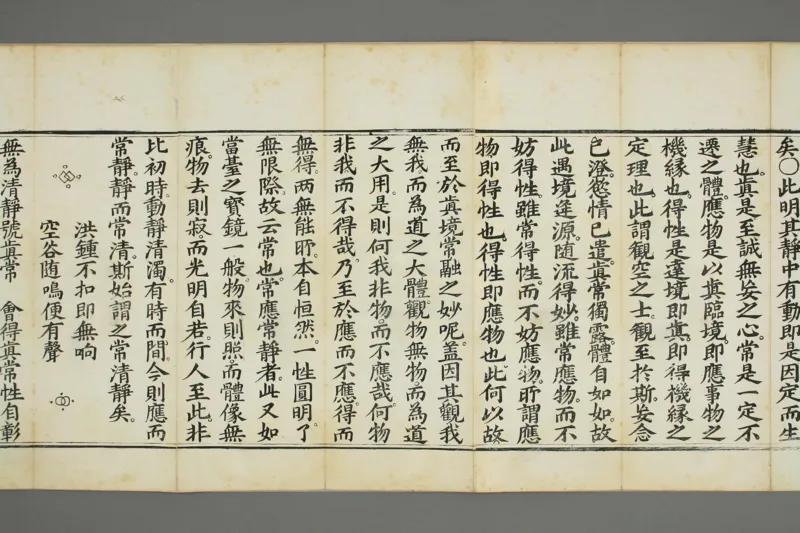 矣○此明其靜中有動即是因定而生
慧也眞是至誠無妄之心常是一定不
遷之體應物是以眞臨境即應事物之
機緣也得性是達境即眞即得機緣之
定理也此謂觀空之士觀至於斯妄念
已澄慾情已遣眞常獨露體自如如故
此遇境逢源随流得妙雖常應物而不
妨得性雖常得性而不妨應物所謂應
物即得性也得性即應物也此何以故
而至於眞境常融之妙呢蓋因其觀我
無我而為道之大體觀物無物而為道
之大用是則何我非物而不應哉何物
非我而不得哉乃至於應而不應得而
無得两無能所本自恒然一性圓明了
無限際故云常也常應常靜者此又如
當臺之寳鏡一般物來則照而體像無
痕物去則寂而光明自若行人至此非
比初時動靜清濁有時而間今則應而
常靜靜而常清斯始謂之常清靜矣
洪鍾不扣即無响
空谷随鳴便有聲
無為清靜號眞常 會得眞常性自彰